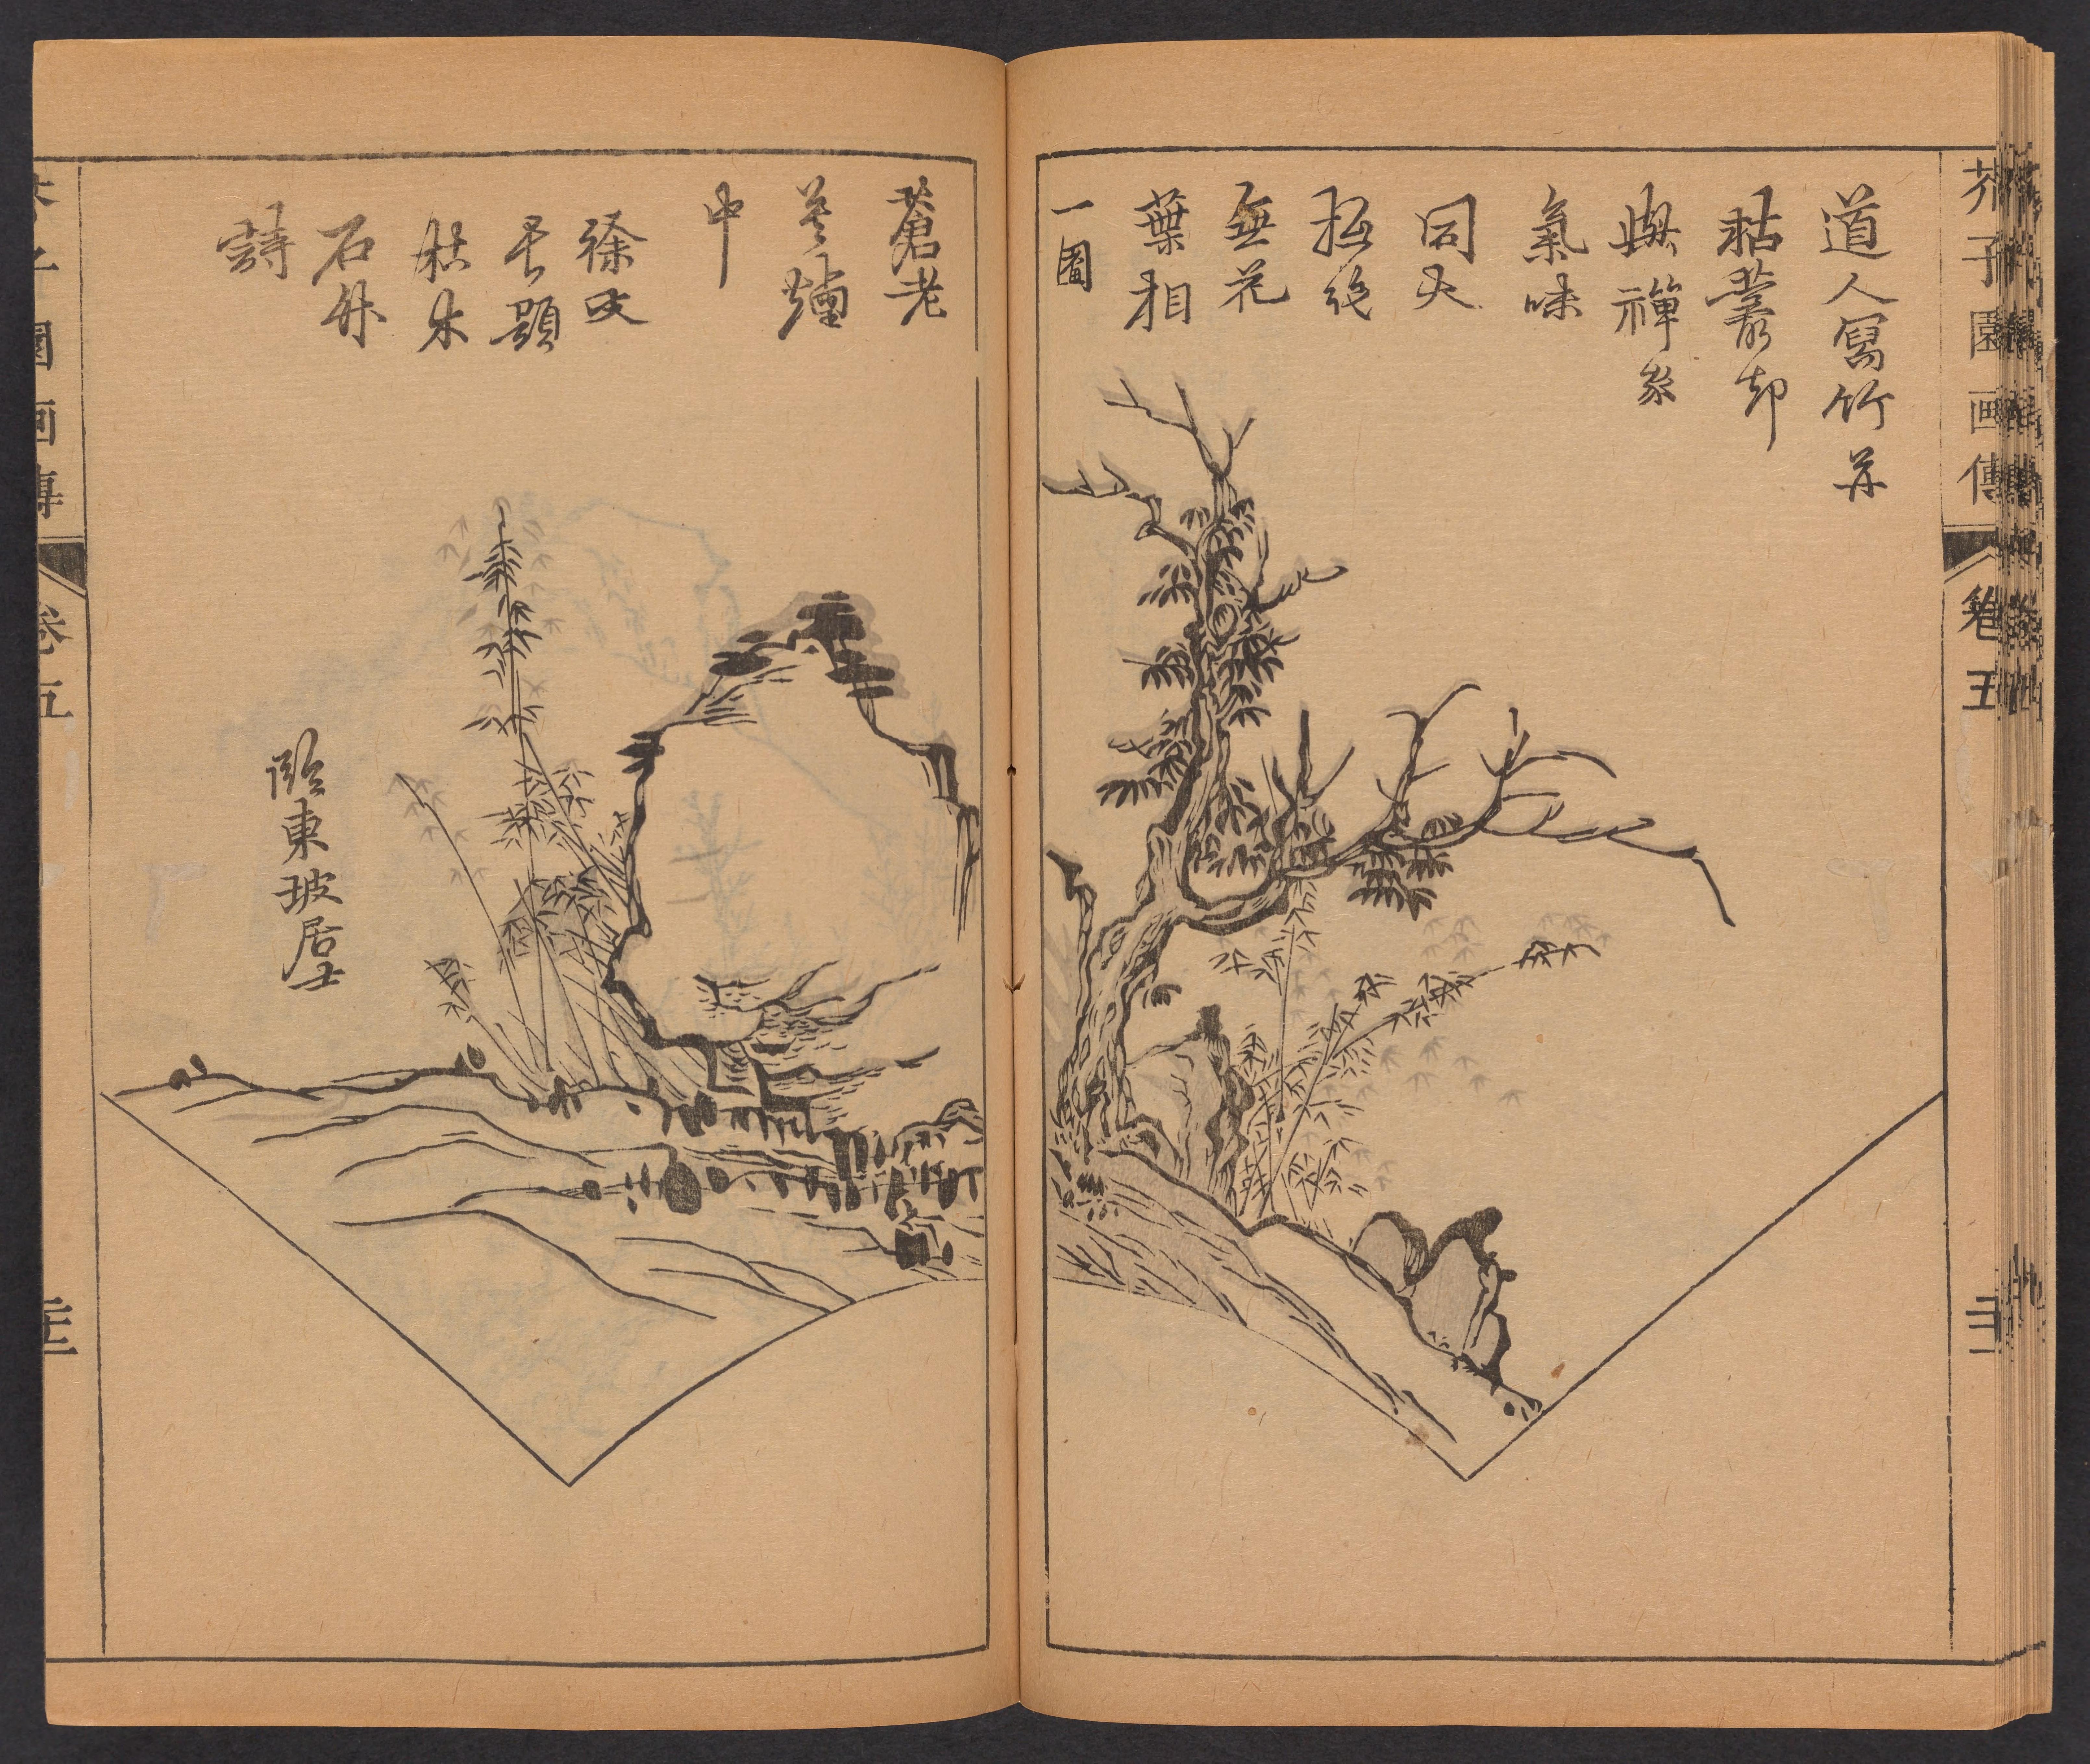 芥子園画傳
卷五
道人寫竹并
枯叢却
與禪家
氣味
同大
極絶
無花
葉相
一圖
蒼老
蒼煙
中
徐文
長題
枯木
石竹
詩
臨東坡居士
芥子園画傳
卷五